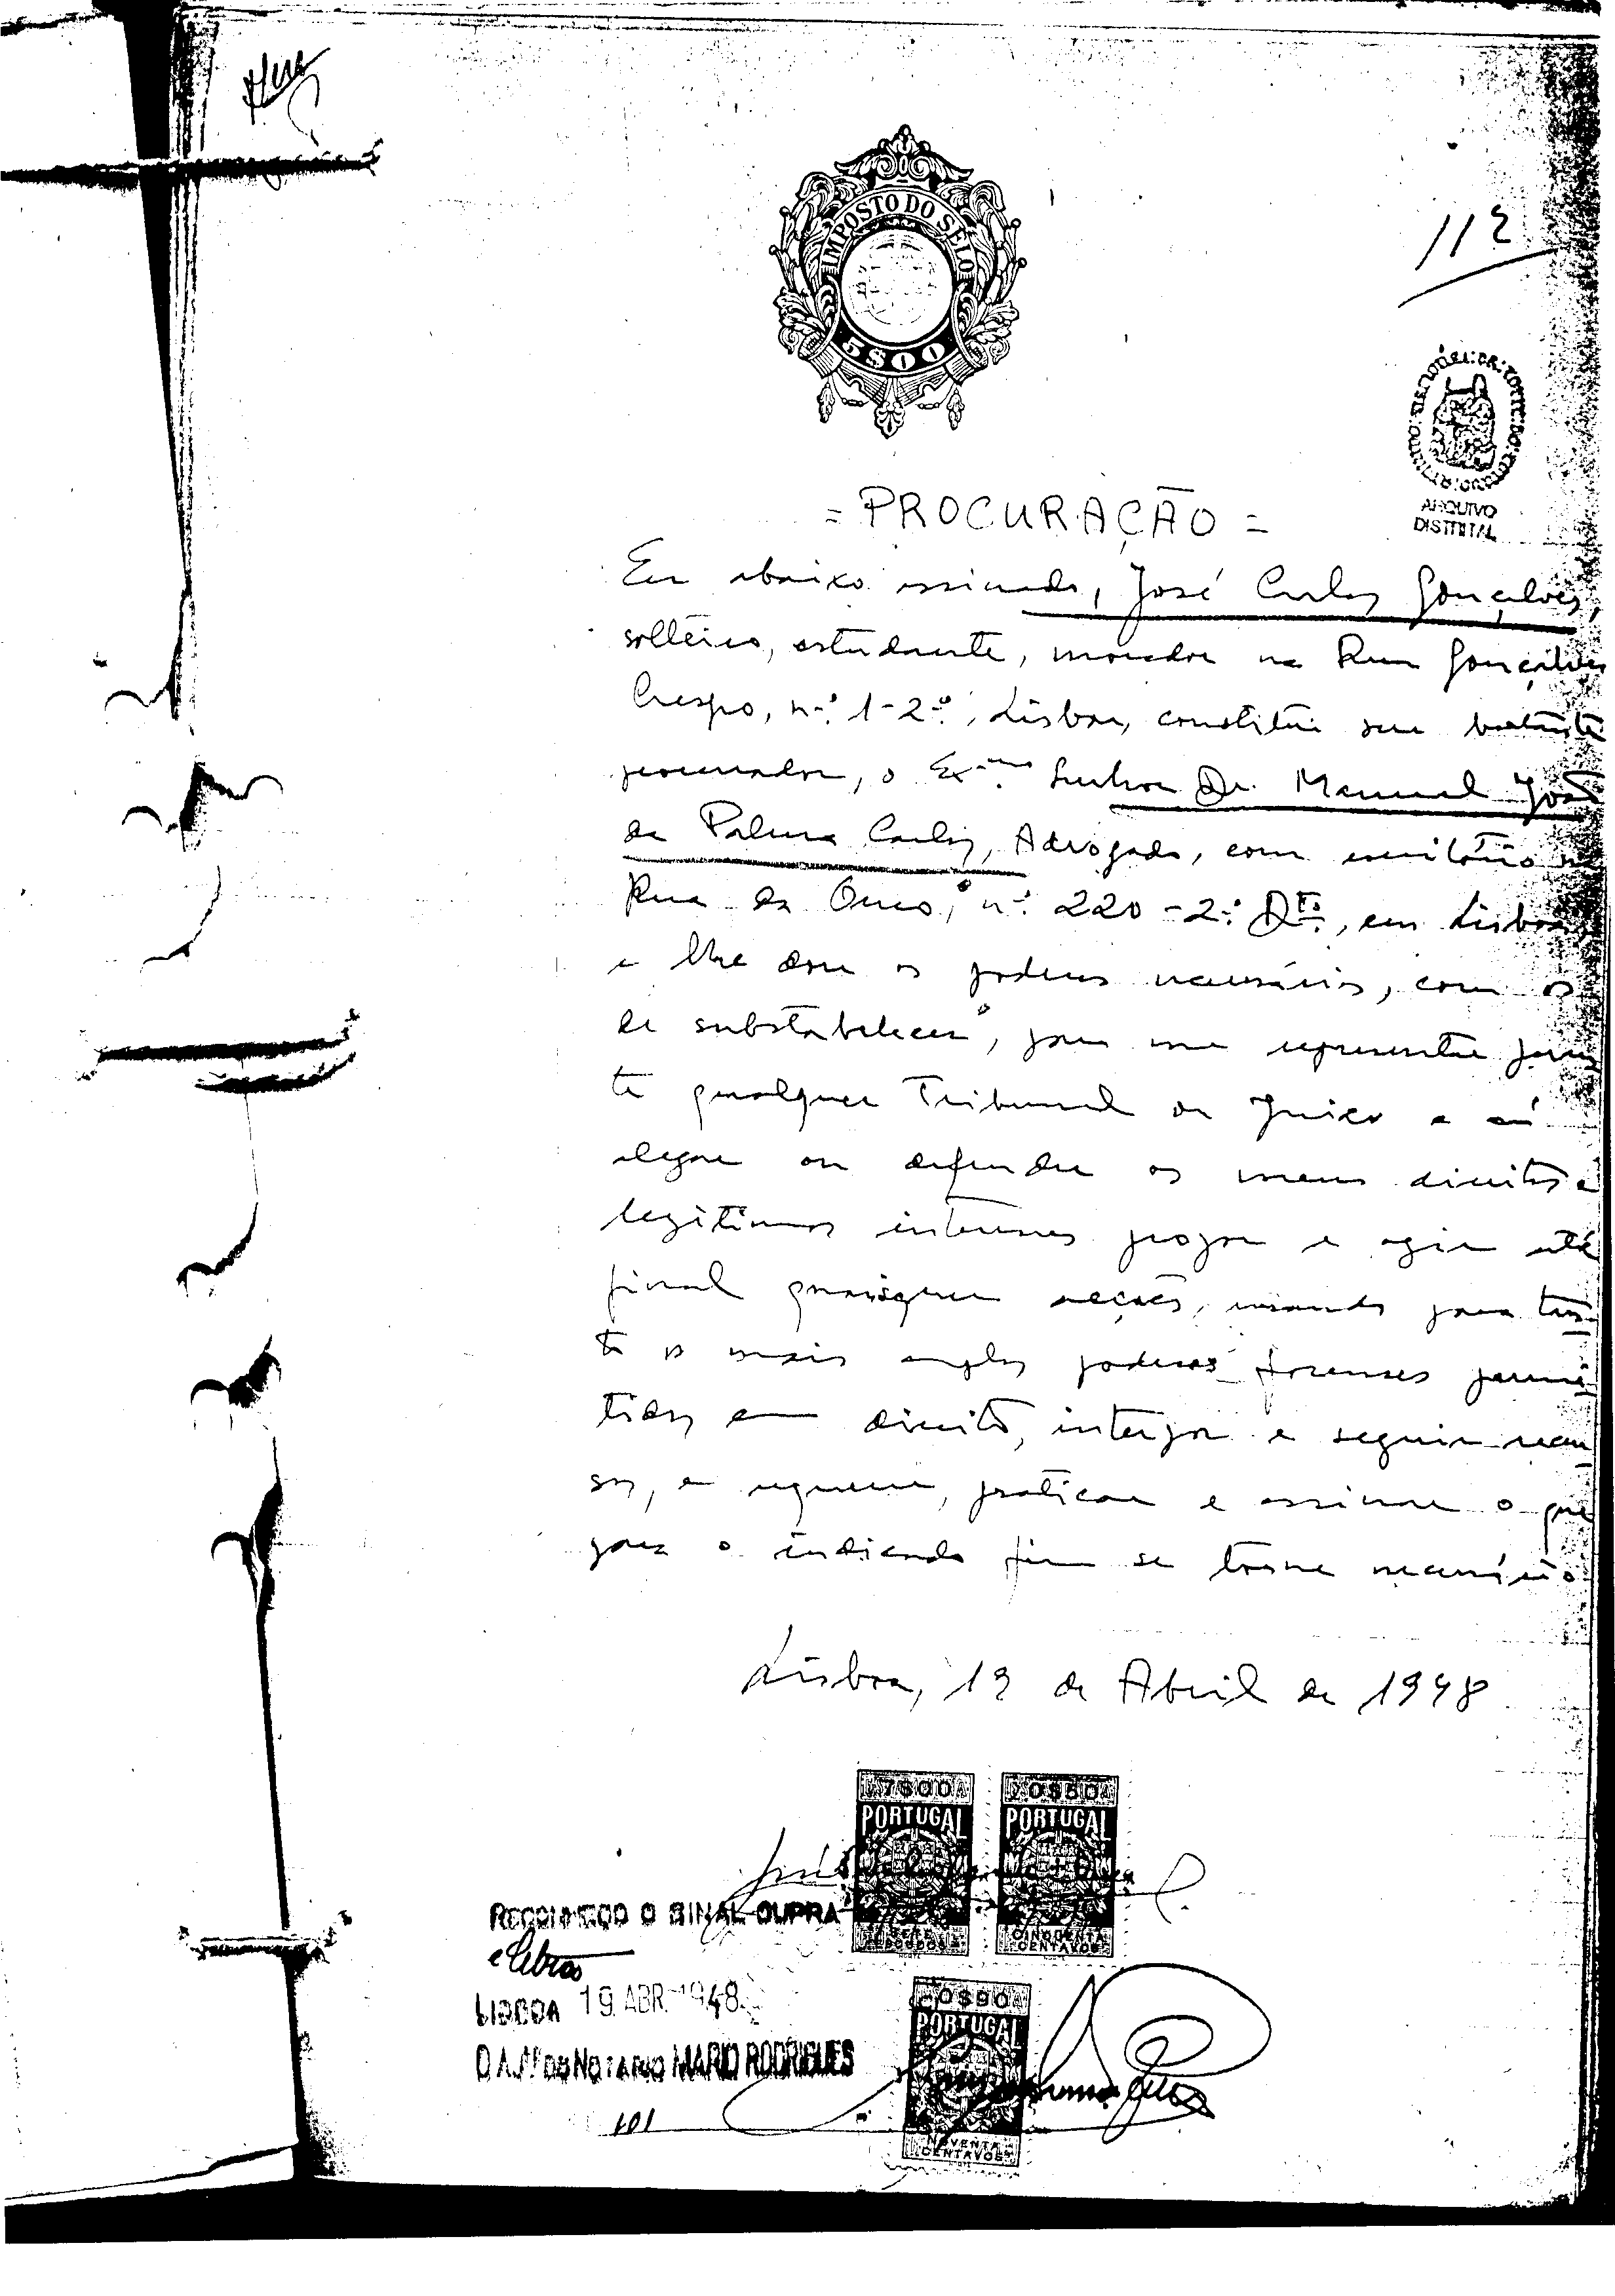 IMPOSTO DO SELO
5$00
112
ARQUIVO
DISTRITAL
= PROCURAÇÃO =
Eu abaixo assinado, José Carlos Gonçalves,
solteiro, estudante, morador na Rua Gonçalves
Crespo, nº 1-2º, Lisboa, constitúi seu bastante
procurador, o Exmo. Senhor Dr. Manuel João
da Palma Carlos, Advogado, com escritório na
Rua do Ouro, nº 220-2º Dto., em Lisboa
e lhe dou os poderes necessários, com os
de substabelecer, para me representar peran
te qualquer Tribunal ou Juizo e aí
alegar ou defender os meus direitos e
legítimos interesses propor e agir até
final quaisquer acções, usando para tan-
to os mais amplos poderes forenses permi-
tidos em direito, interpor e seguir recur
sos, e requerer, praticar e assinar o que
para o indicado fim se torne necessário.
Lisboa, 19 de Abril de 1948
7$00
PORTUGAL
SETE
ESCUDOS
0$50
PORTUGAL
CINQUENTA
CENTAVOS
José
RECONHEÇO O SINAL SUPRA
LISBOA 19 ABR. 1948
O AJ.te DO NOTARIO MARIO RODRIGUES
0$90
PORTUGAL
NOVENTA
CENTAVOS
101